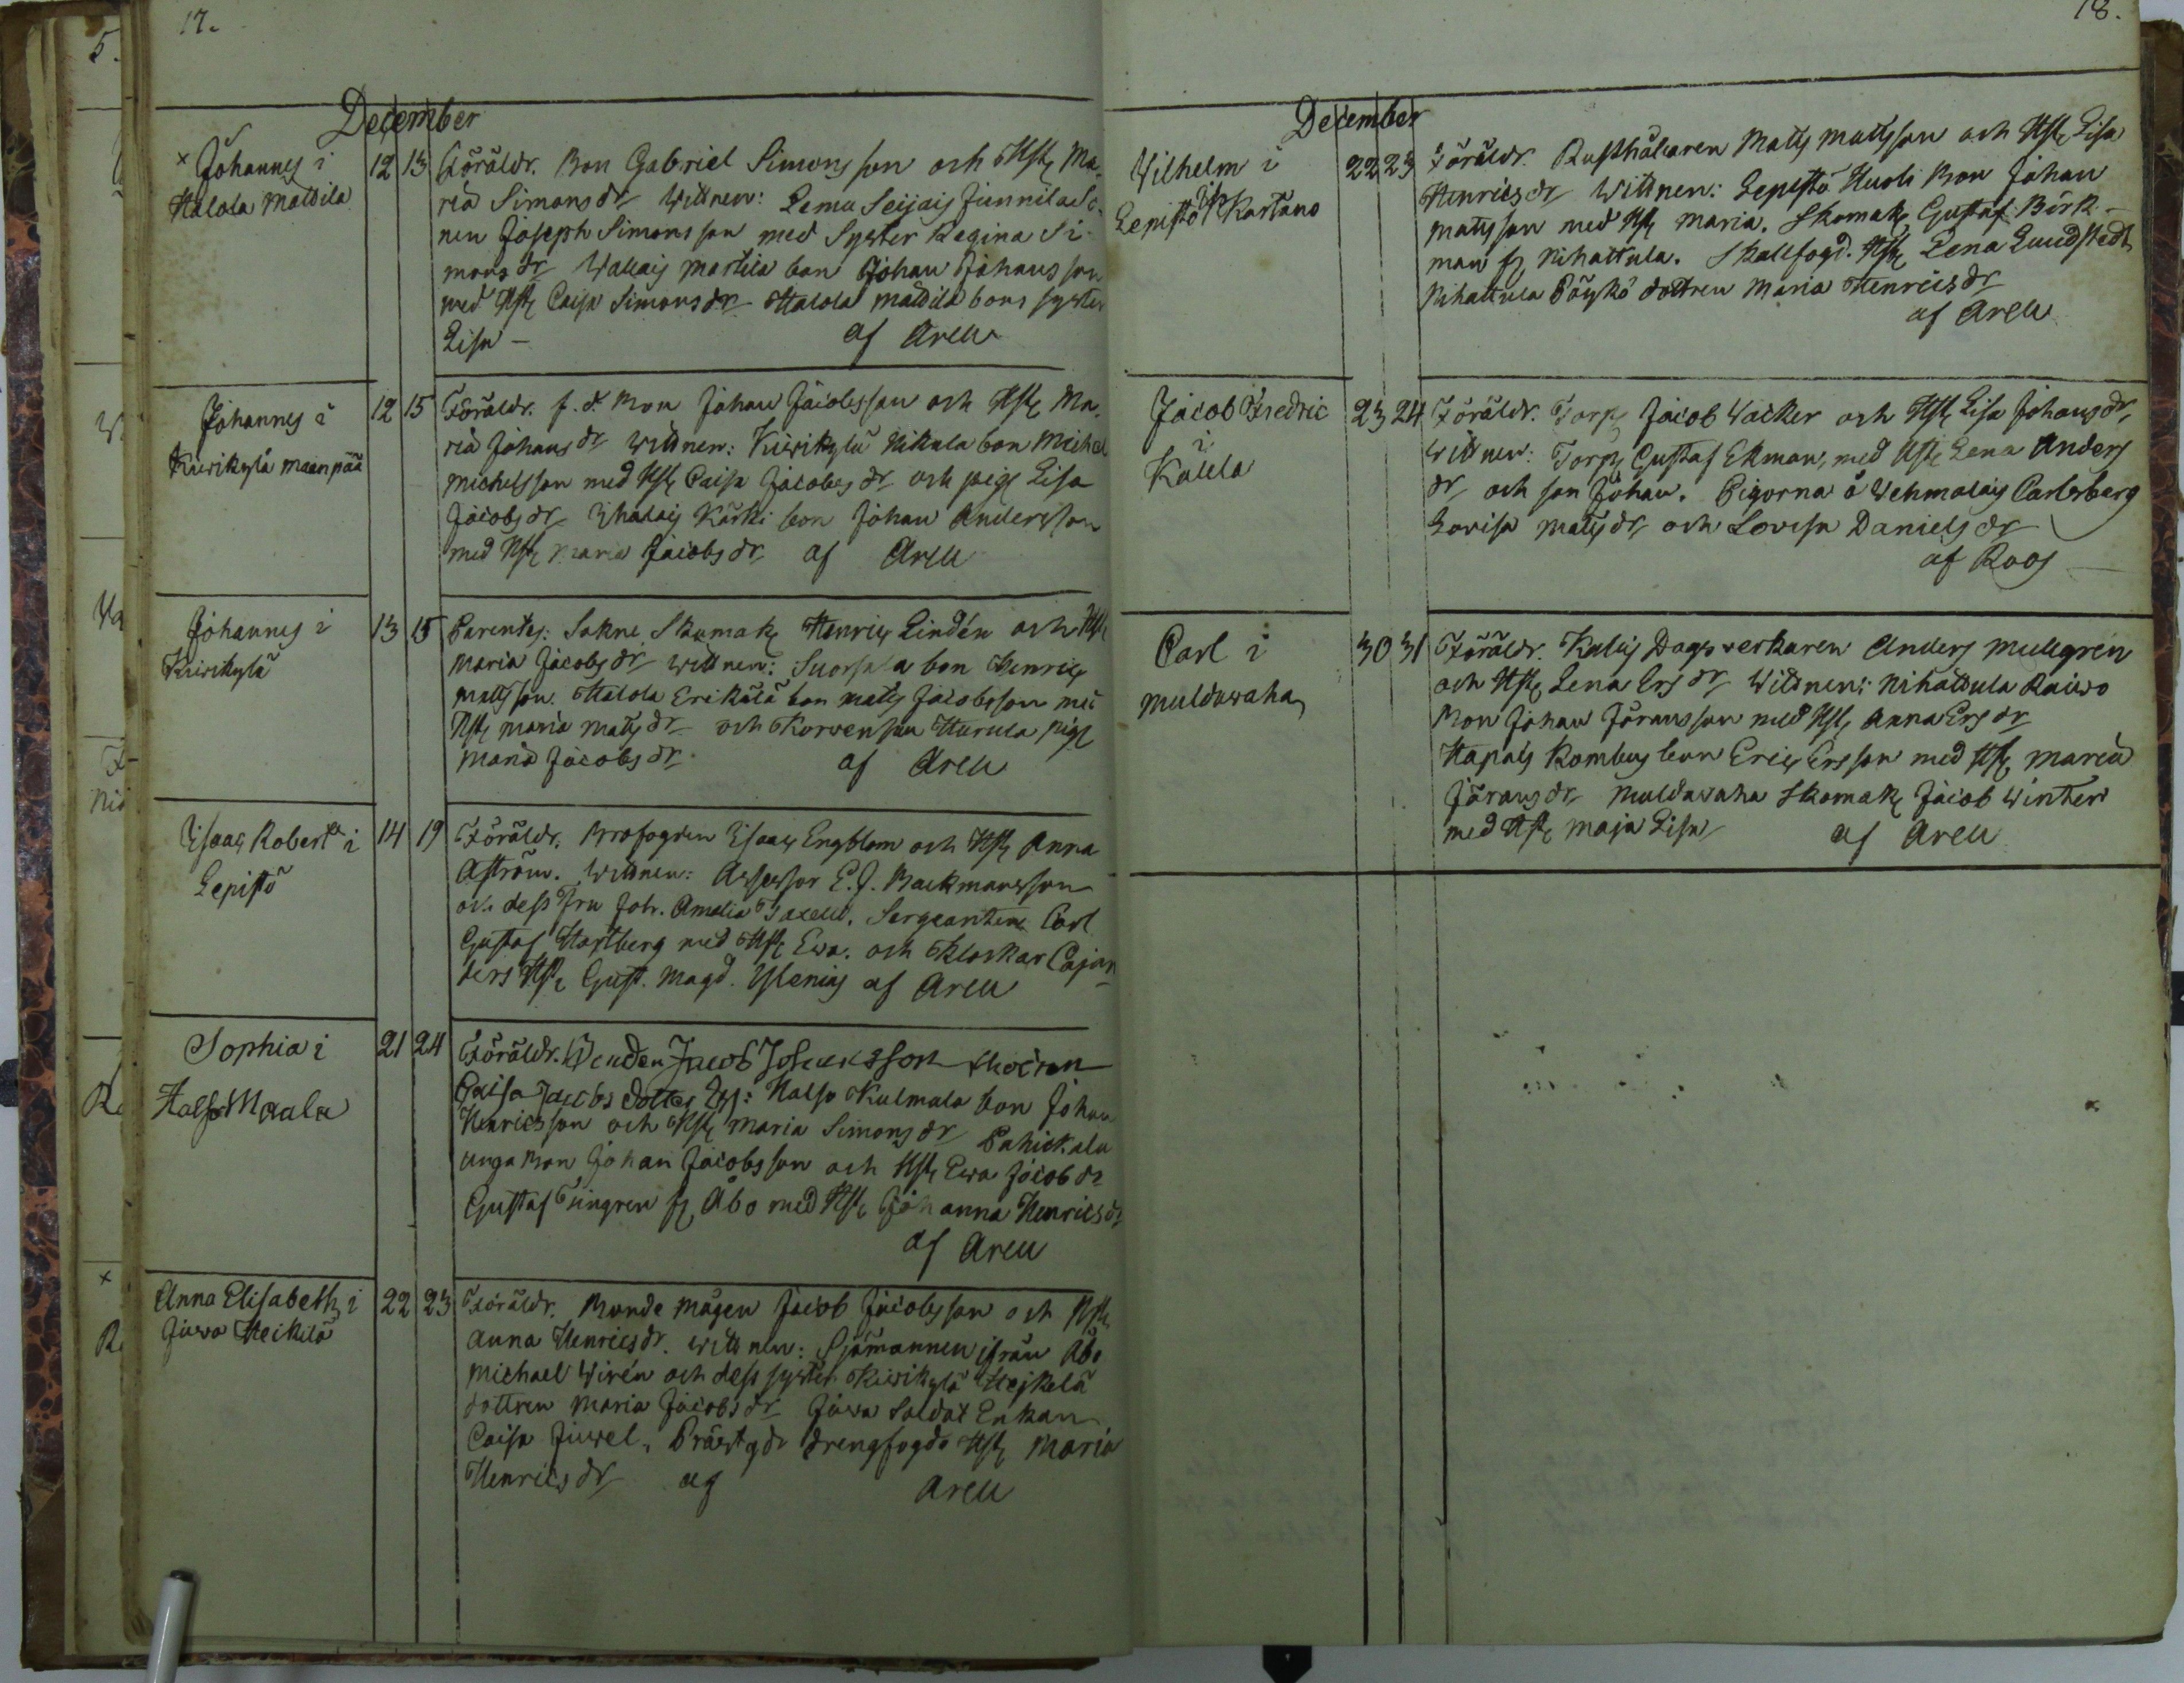 17.
December
× Johannes i
Halola Mattila
12 13
Föräldr. Bon Gabriel Simonsson och Hst. Ma-
ria Simonsdr Wittnen: Lemu Seijais Junnila So-
nen Joseph Simonsson med Syster Regina Si-
monsdr Wallais Martila bon Johan Johansson
med Hst. Caisa Simonsdr Halola Mattila bons syster
Lisa — af Areu
Johannes i
Kiwikylä Maanpää
12 15
Föräldr. f. d. Bon Johan Jacobsson och Hst. Ma-
ria Johansdr Wittnen: Kiwikylä Nikula bon Michel
Michelsson med Hst. Caisa Jacobsdr och pig. Lisa
Jacobsdr Ihalais Kärki bon Johan Andersson
med Hst. Maria Jacobsdr af Areu
Johannes i
Kiwikylä
13 15
Parentes: Sokne Skomak. Henric Lindén och Hst.
Maria Jacobsdr Wittnen: Suorsala bon Henric
Mattsson. Halola Erikälä bon Matts Jacobsson med
Hst. Maria Mattsdr och Korwensuu Hurula pig.
Maria Jacobsdr af Areu
Isaac Robert i
Lepistö
14 19
Föräldr. Profogden Isaac Engblom och Hst. Anna
Aström. Wittnen: Assessor E. J. Backmansson
och dess Fru Joh. Amalia Taxell. Sergeanten Carl
Gustaf Hartberg med Hst. Ewa. och Klockar Cajan-
ders Hst. Gust. Magd. Ylenius af Areu
Sophia i
Kalso Maala
21 24
Föräldr. Bonden Jacob Johansson Modren
Caisa Jacobs dotter Test: Kalso Kulmala bon Johan
Henricsson och Hst. Maria Simonsdr Pahickala
unga Bon Johan Jacobsson och Hst. Ewa Jacobdr
Gustaf Tungren fr. Åbo med Hst. Johanna Henricsdr
af Areu
×
Anna Elisabeth i
Juwa Heikilä
22 23
Föräldr. Bonde Mågen Jacob Jacobsson och Hst.
Anna Henricsdr. Wittnen: Sjömannen ifrån Åbo
Michael Wirén och dess syster Kiwikylä Hejkelä
dottren Maria Jacobsdr Juwa Soldat Enkan
Caisa Juwel, Prästgds drengfogds Hst. Maria
Henricsdr af Areu
18.
December
Wilhelm i
Lepistö Kartano
22 23
Föräldr. Rusthållaren Matts Mattsson och Hst. Lisa
Henricsdr Wittnen: Lepistö Huoli Bon Johan
Mattsson med Hst. Maria. Skomak. Gustaf Börk-
man fr. Nihattula. Skallfogd. Hst. Lena Lundstedt
Nihattula Pöykö dottren Maria Henricsdr
af Areu
Jacob Fredric
i
Kalela
23 24
Föräldr. Torp. Jacob Wacker och Hst. Lisa Johansdr,
Wittnen: Torp. Gustaf Ekman, med Hst. Lena Anders
dr och son Johan. Pigorna å Wehmalais Carlsberg
Lovisa Mattsdr, och Lovisa Danielsdr
af Roos
Carl i
Muldawaha
30 31
Föräldr. Kalais Dagsverkaren Anders Mullgrén
och Hst. Lena Ersdr Wittnen: Nihattula Raiwo
Bon Johan Jöransson med Hst. Anna Ersdr
Hapals Rombus bon Eric Ersson med Hst. Maria
Jöransdr Muldawaha Skomak. Jacob Winter
med Hst. Maja Lisa af Areu